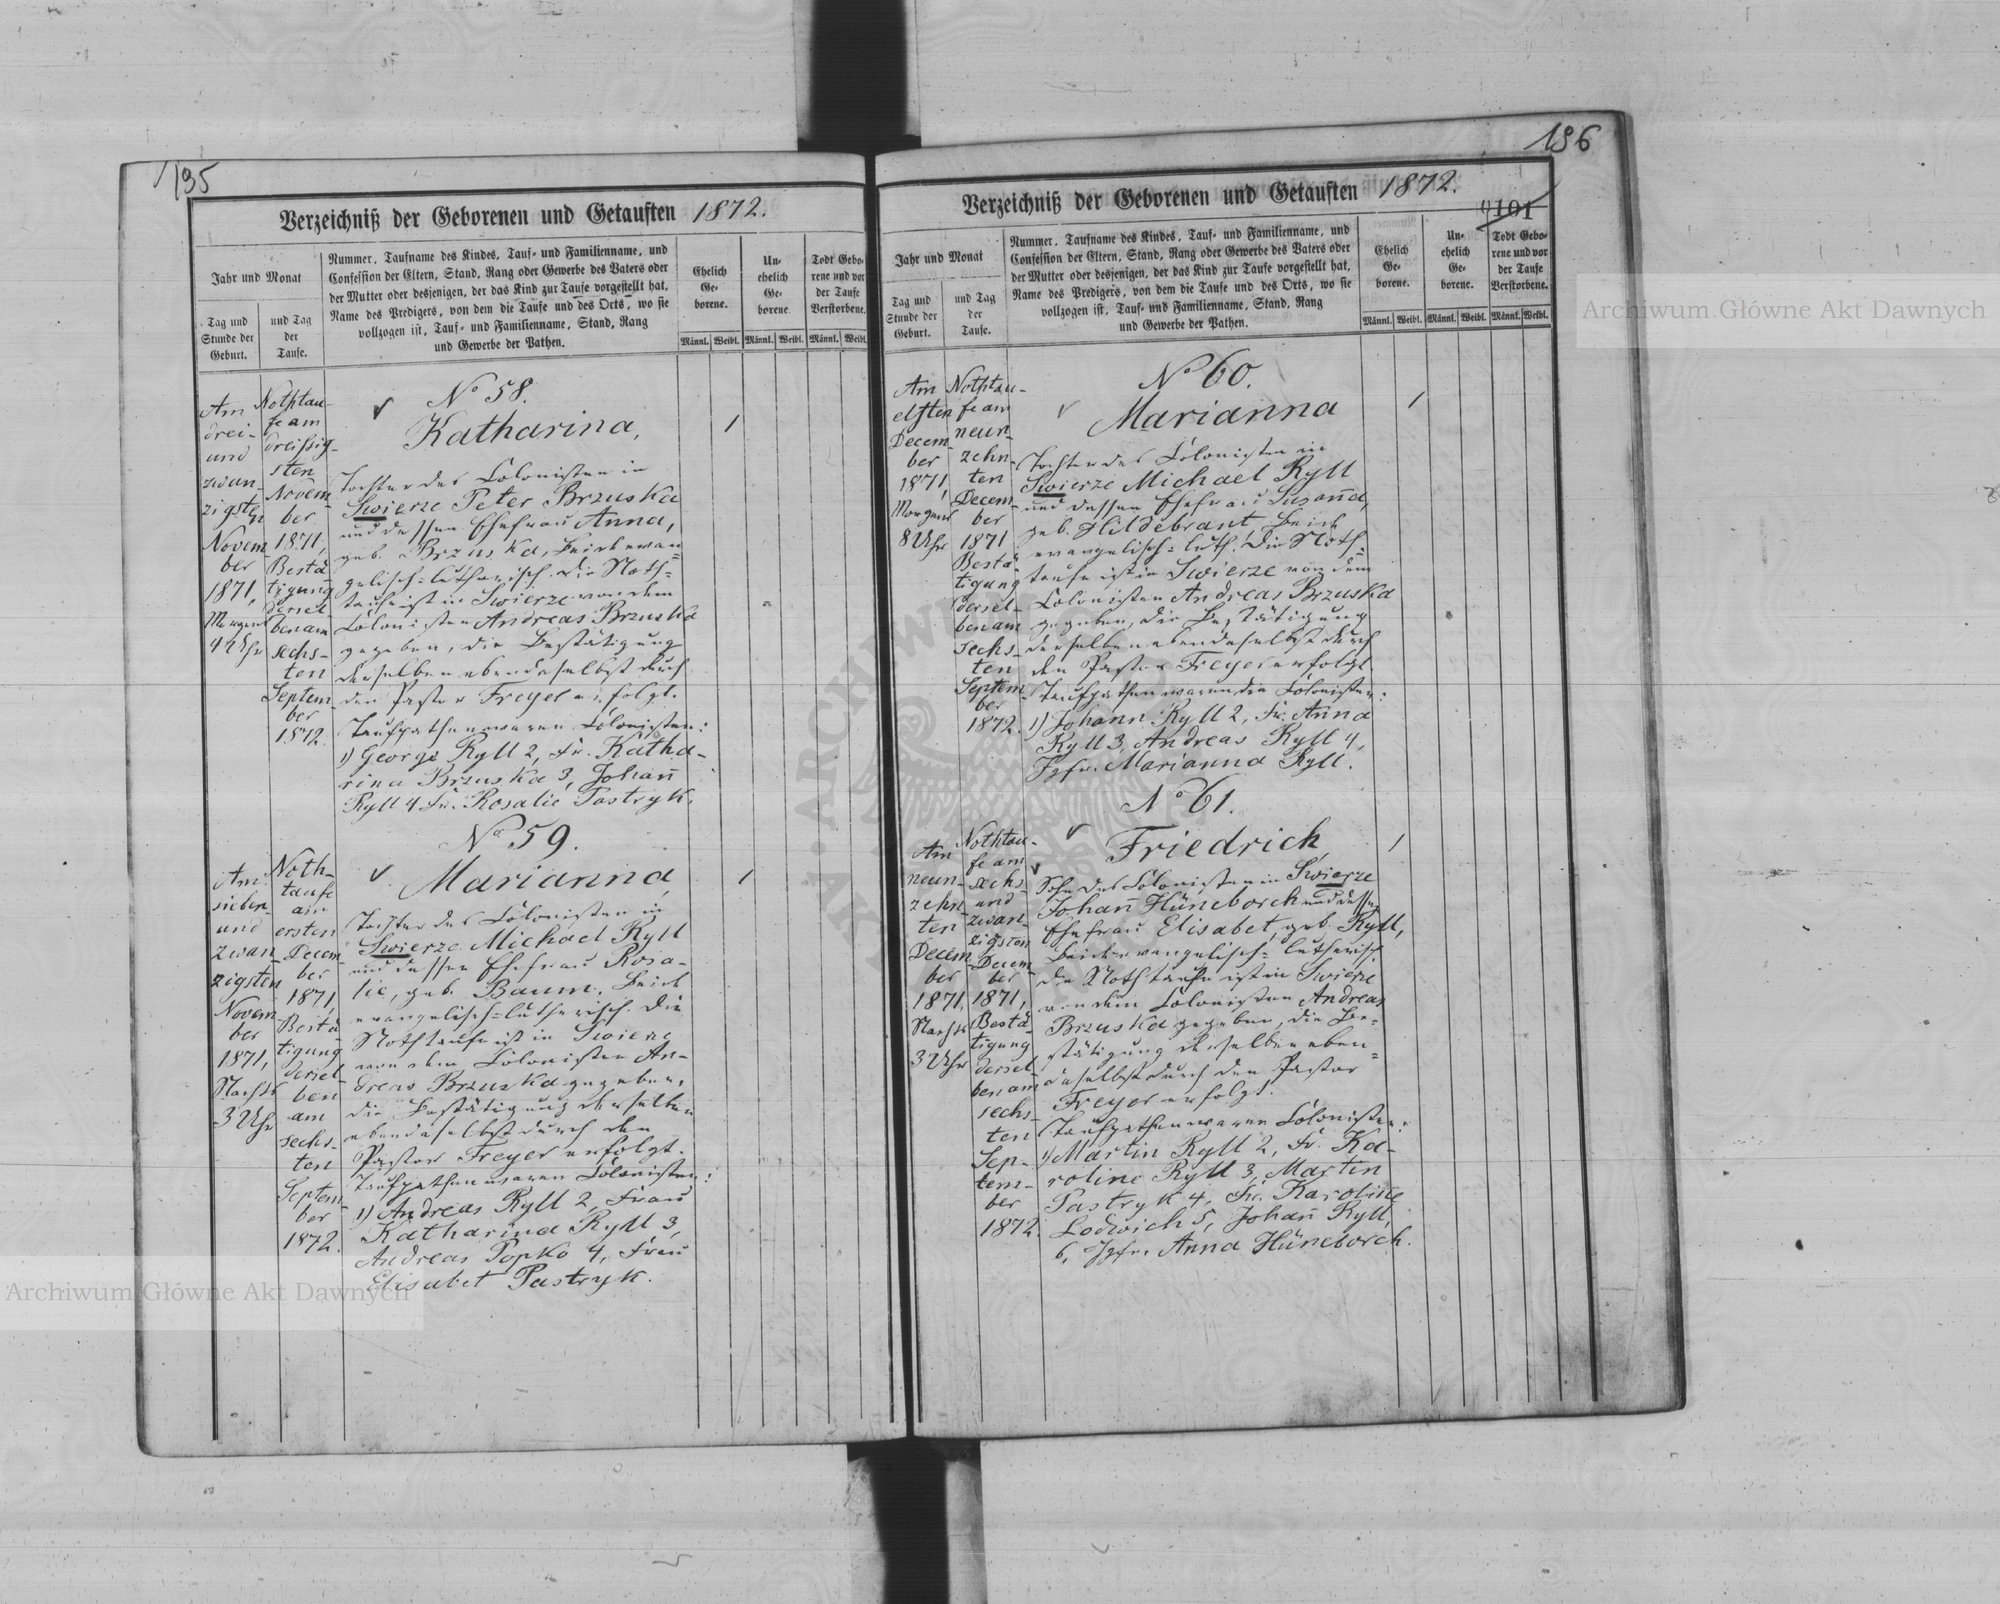 195
Verzeichniß der Geborenen und Getauften 1872.
Jahr und Monat
Tag und
Stunde der
Geburt.
und Tag
der
Taufe.
Nummer, Taufname des Kindes, Tauf- und Familienname, und
Confession der Eltern, Stand, Rang oder Gewerbe des Vaters oder
der Mutter oder desjenigen, der das Kind zur Taufe vorgestellt hat,
Name des Predigers, von dem die Taufe und des Orts, wo sie
vollzogen ist, Tauf- und Familienname, Stand, Rang
und Gewerbe der Pathen.
Ehelich
Ge-
borene.
Un-
ehelich
Ge-
borene
Todt Gebo-
rene und vor
der Taufe
Verstorbene.
Männl. Weibl. Männl. Weibl. Männl. Weibl.
Am
drei-
und
zwan-
zigsten
Novem-
ber
1871,
Morgens
4 Uhr
Nothtau-
fe am
dreißig-
sten
Novem-
ber
1871,
Bestä-
tigung
dersel-
ben am
sechs-
ten
Septem-
ber
1872.
No 58.
Katharina,
Tochter des Colonisten in
Swierze Peter Brzuska
und dessen Ehefrau Anna,
geb. Brzuska, beide evan-
gelisch-lutherisch. Die Noth-
taufe ist in Swierze von dem
Colonisten Andreas Brzuska
gegeben, die Bestätigung
derselben ebendaselbst durch
den Pastor Freyer erfolgt.
Taufpathen waren Colonisten:
1) George Ryll 2, Fr. Katha-
rina Brzuska 3, Johann
Ryll 4 Fr. Rosalie Pastryk.
Am
sieben-
und
zwan-
zigsten
Novem-
ber
1871,
Nachts
3 Uhr
Noth-
taufe
am
ersten
Decem-
ber
1871,
Bestä-
tigung
dersel-
ben
am
sechs-
ten
Septem-
ber
1872.
No 59.
Marianna,
Tochter des Colonisten in
Swierze Michael Ryll
und dessen Ehefrau Rosa-
lie, geb. Baum, beide
evangelisch-lutherisch. Die
Nothtaufe ist in Swierze
von dem Colonisten An-
dreas Brzuska gegeben,
die Bestätigung derselben
ebendaselbst durch den
Pastor Freyer erfolgt.
Taufpathen waren Colonisten:
1) Andreas Ryll 2, Frau
Katharina Ryll 3,
Andreas Popko 4, Frau
Elisabet Pastryk.
196
101
Verzeichniß der Geborenen und Getauften 1872.
Jahr und Monat
Tag und
Stunde der
Geburt.
und Tag
der
Taufe.
Nummer, Taufname des Kindes, Tauf- und Familienname, und
Confession der Eltern, Stand, Rang oder Gewerbe des Vaters oder
der Mutter oder desjenigen, der das Kind zur Taufe vorgestellt hat,
Name des Predigers, von dem die Taufe und des Orts, wo sie
vollzogen ist, Tauf- und Familienname, Stand, Rang
und Gewerbe der Pathen.
Ehelich
Ge-
borene.
Un-
ehelich
Ge-
borene.
Todt Gebo-
rene und vor
der Taufe
Verstorbene.
Männl. Weibl. Männl. Weibl. Männl. Weibl.
Am
elften
Decem-
ber
1871,
Morgens
8 Uhr
Nothtau-
fe am
neun-
zehn-
ten
Decem-
ber
1871
Bestä-
tigung
dersel-
ben am
sechs-
ten
Septem-
ber
1872.
No 60.
Marianna
Tochter des Colonisten in
Swierze Michael Ryll
und dessen Ehefrau Susanna,
geb. Hildebrant, beide
evangelisch-luth. Die Noth-
taufe ist in Swierze von dem
Colonisten Andreas Brzuska
gegeben, die Bestätigung
derselben ebendaselbst durch
den Pastor Freyer erfolgt.
Taufpathen waren die Colonisten:
1) Johann Ryll 2, Fr. Anna
Ryll 3, Andreas Ryll 4,
Jgfr. Marianna Ryll.
Am
neun-
zehn-
ten
Decem-
ber
1871,
Nachts
3 Uhr
Nothtau-
fe am
sechs-
und
zwan-
zigsten
Decem-
ber
1871,
Bestä-
tigung
dersel-
ben am
sechs-
ten
Sep-
tem-
ber
1872.
No 61.
Friedrich,
Sohn des Colonisten in Swierze
Johann Hüneborch und dessen
Ehefrau Elisabet, geb. Ryll,
beide evangelisch-lutherisch.
Die Nothtaufe ist in Swierze
von dem Colonisten Andreas
Brzuska gegeben, die Be-
stätigung derselben eben-
daselbst durch den Pastor
Freyer erfolgt.
Taufpathen waren Colonisten:
1) Martin Ryll 2, Fr. Ka-
roline Ryll 3, Martin
Pastryk 4, Fr. Karoline
Lodwich 5, Johann Ryll,
6, Jgfr. Anna Hüneborch.
Archiwum Główne Akt Dawnych
Archiwum Główne Akt Dawnych